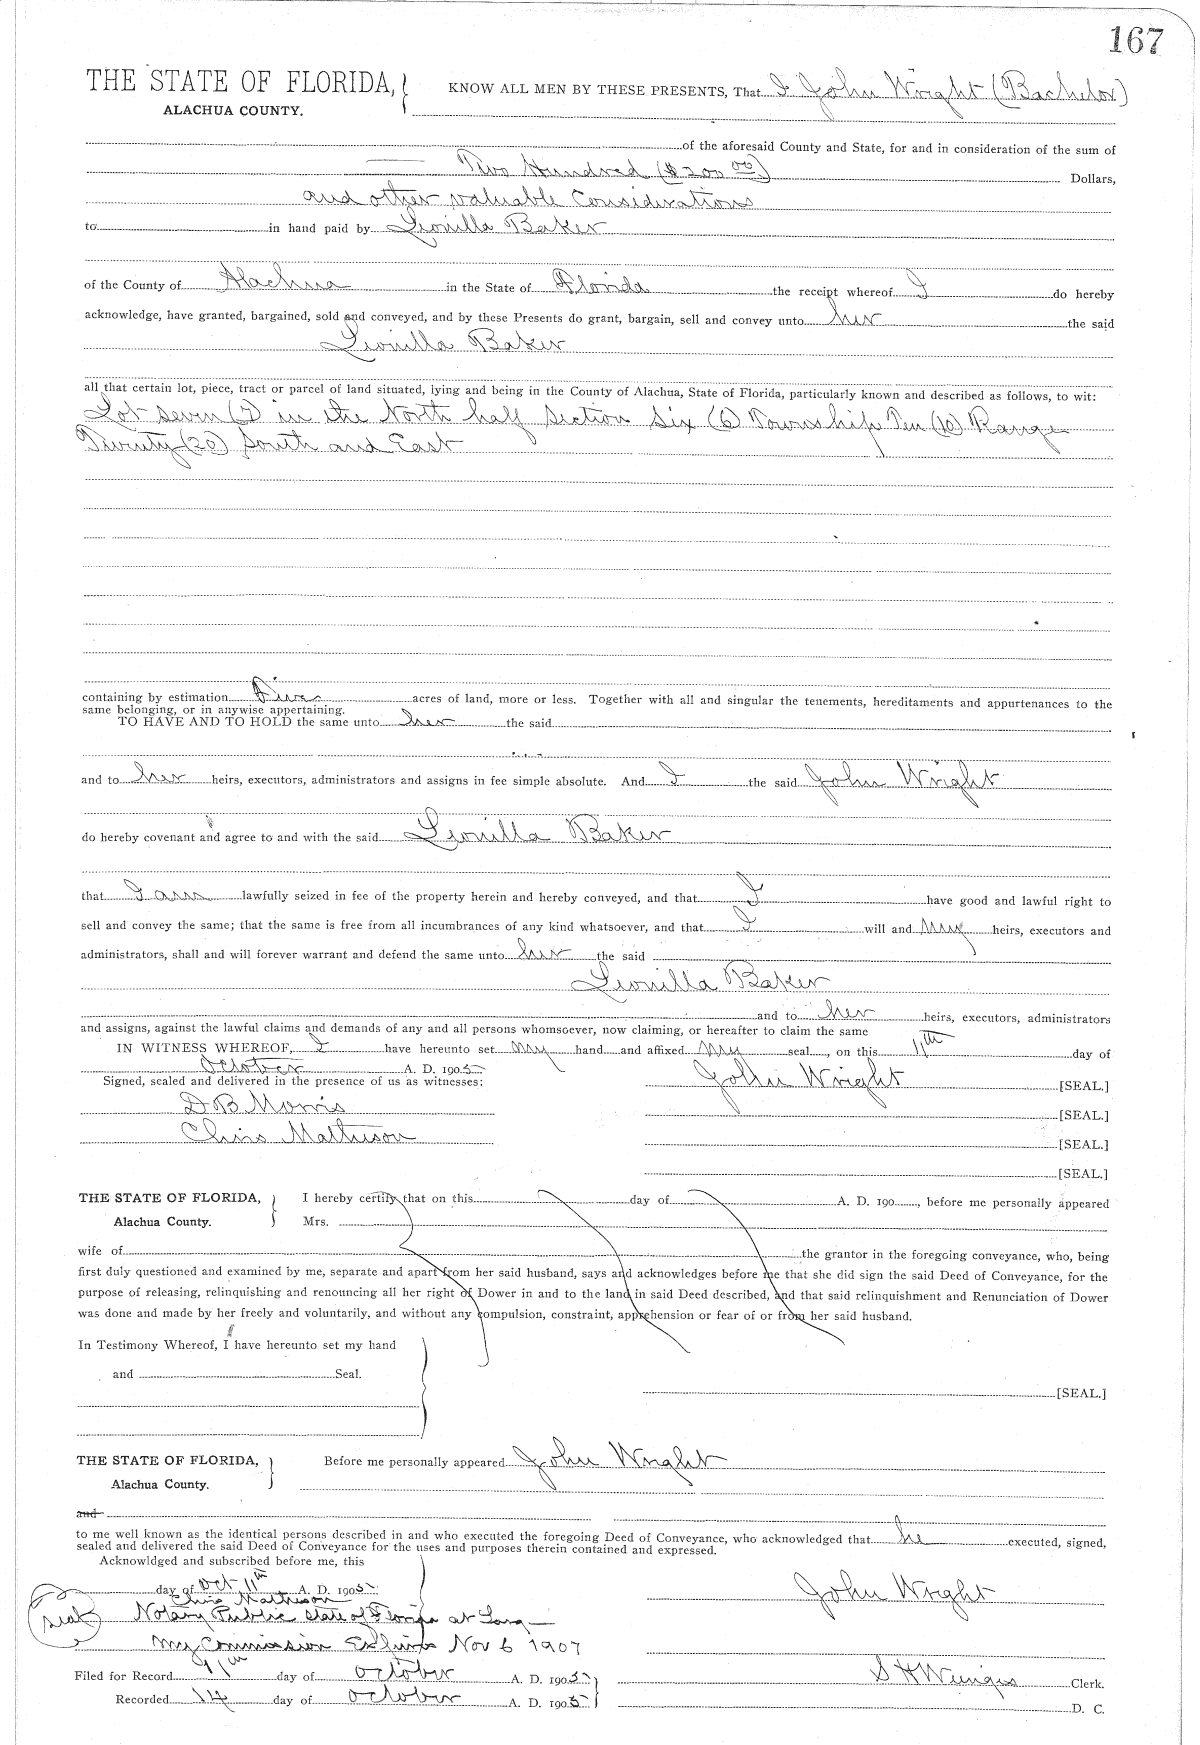 167
THE STATE OF FLORIDA, KNOW ALL MEN BY THESE PRESENTS, That I John Wright (Bachelor)
ALACHUA COUNTY.
of the aforesaid County and State, for and in consideration of the sum of
Two Hundred ($200 00) Dollars,
and other valuable Considerations
to in hand paid by Leonilla Baker
of the County of Alachua in the State of Florida the receipt whereof I do hereby
acknowledge, have granted, bargained, sold and conveyed, and by these Presents do grant, bargain, sell and convey unto her the said
Leonilla Baker
all that certain lot, piece, tract or parcel of land situated, lying and being in the County of Alachua, State of Florida, particularly known and described as follows, to wit:
Lot seven (7) in the North half Section Six (6) Township Ten (10) Range
Twenty (20) South and East
containing by estimation acres of land, more or less. Together with all and singular the tenements, hereditaments and appurtenances to the
same belonging, or in anywise appertaining.
TO HAVE AND TO HOLD the same unto her the said
and to her heirs, executors, administrators and assigns in fee simple absolute. And I the said John Wright
do hereby covenant and agree to and with the said Leonilla Baker
that I am lawfully seized in fee of the property herein and hereby conveyed, and that I have good and lawful right to
sell and convey the same; that the same is free from all incumbrances of any kind whatsoever, and that I will and my heirs, executors and
administrators, shall and will forever warrant and defend the same unto her the said
Leonilla Baker
and to her heirs, executors, administrators
and assigns, against the lawful claims and demands of any and all persons whomsoever, now claiming, or hereafter to claim the same
IN WITNESS WHEREOF, I have hereunto set my hand and affixed my seal, on this 11th day of
October A. D. 1905
Signed, sealed and delivered in the presence of us as witnesses: John Wright [SEAL.]
D B Morris [SEAL.]
Chris Matheson [SEAL.]
[SEAL.]
THE STATE OF FLORIDA, I hereby certify that on this day of A. D. 190 , before me personally appeared
Alachua County. Mrs.
wife of the grantor in the foregoing conveyance, who, being
first duly questioned and examined by me, separate and apart from her said husband, says and acknowledges before me that she did sign the said Deed of Conveyance, for the
purpose of releasing, relinquishing and renouncing all her right of Dower in and to the land in said Deed described, and that said relinquishment and Renunciation of Dower
was done and made by her freely and voluntarily, and without any compulsion, constraint, apprehension or fear of or from her said husband.
In Testimony Whereof, I have hereunto set my hand
and Seal.
[SEAL.]
THE STATE OF FLORIDA, Before me personally appeared John Wright
Alachua County.
and
to me well known as the identical persons described in and who executed the foregoing Deed of Conveyance, who acknowledged that he executed, signed,
sealed and delivered the said Deed of Conveyance for the uses and purposes therein contained and expressed.
Acknowldged and subscribed before me, this
day of Oct 11th A. D. 1905 John Wright
Chris Matheson
seal Notary Public State of Florida at Large
My Commission Expires Nov 6 1907
Filed for Record 11th day of October A. D. 1905 Clerk.
Recorded 14 day of October A. D. 1905 D. C.